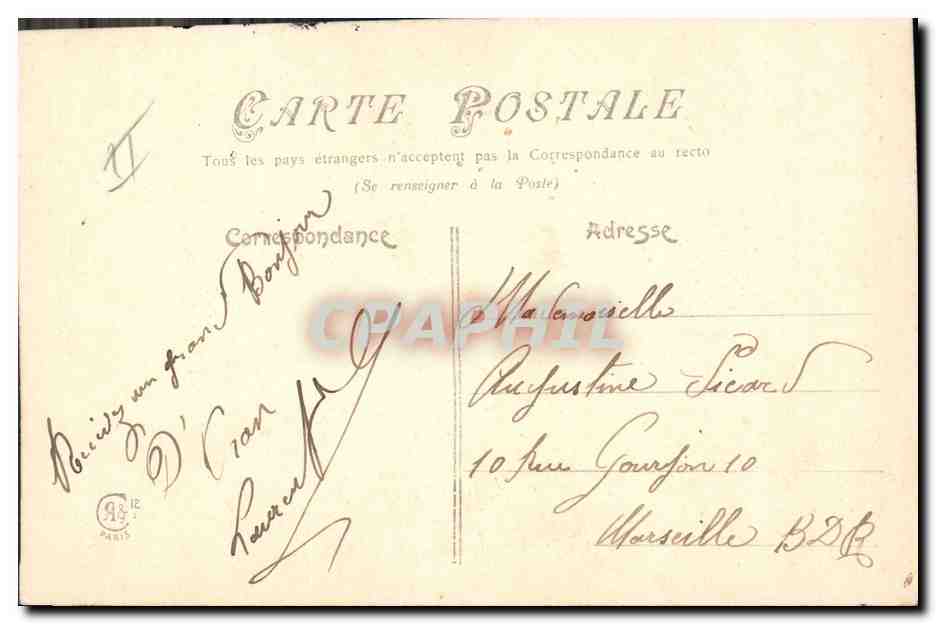 CARTE POSTALE
Tous les pays étrangers n'acceptent pas la Correspondance au recto
(Se renseigner à la Poste)
Correspondance
Adresse
II
un grand Bonjour
D'Oran
Laurent
CPAPHIL
Mademoiselle
Augustine Sicard
10 Rue 10
Marseille BDR
12
PARIS